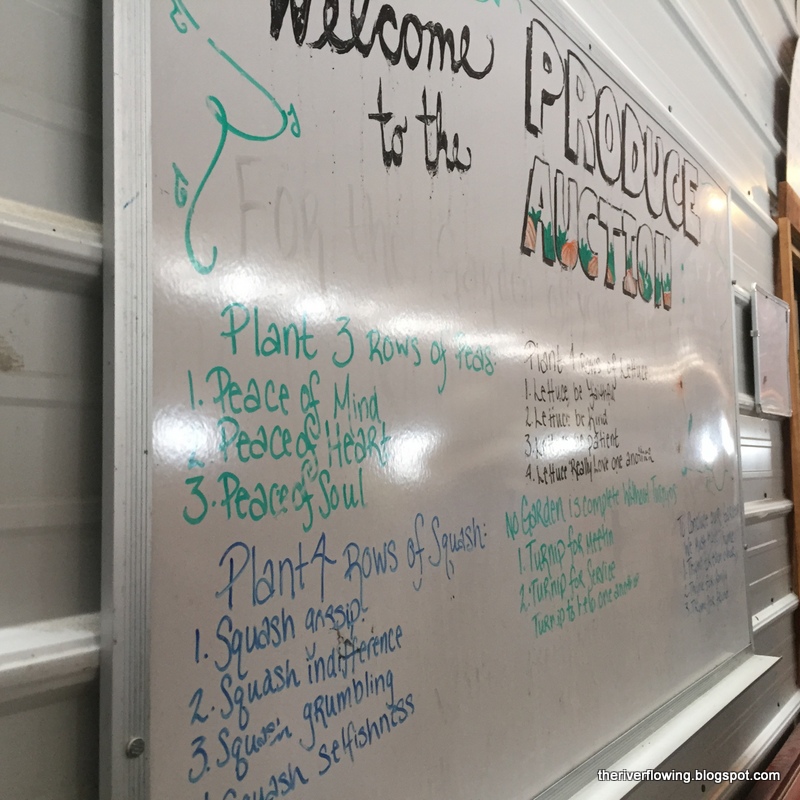 Welcome
to the
PRODUCE
AUCTION
For the
Plant 3 Rows of Peas:
1. Peace of Mind
2. Peace of Heart
3. Peace of Soul
Plant 4 Rows of Squash:
1. Squash gossip
2. Squash indifference
3. Squash grumbling
Squash selfishness
Plant 4 Rows of Lettuce
1. Lettuce be faithful
2. Lettuce be Kind
3. Lettuce be Patient
4. Lettuce Really Love one another
No Garden is complete without Turnips
1. Turnip for Meetin
2. Turnip for Service
Turnip to help one another
theriverflowing.blogspot.com